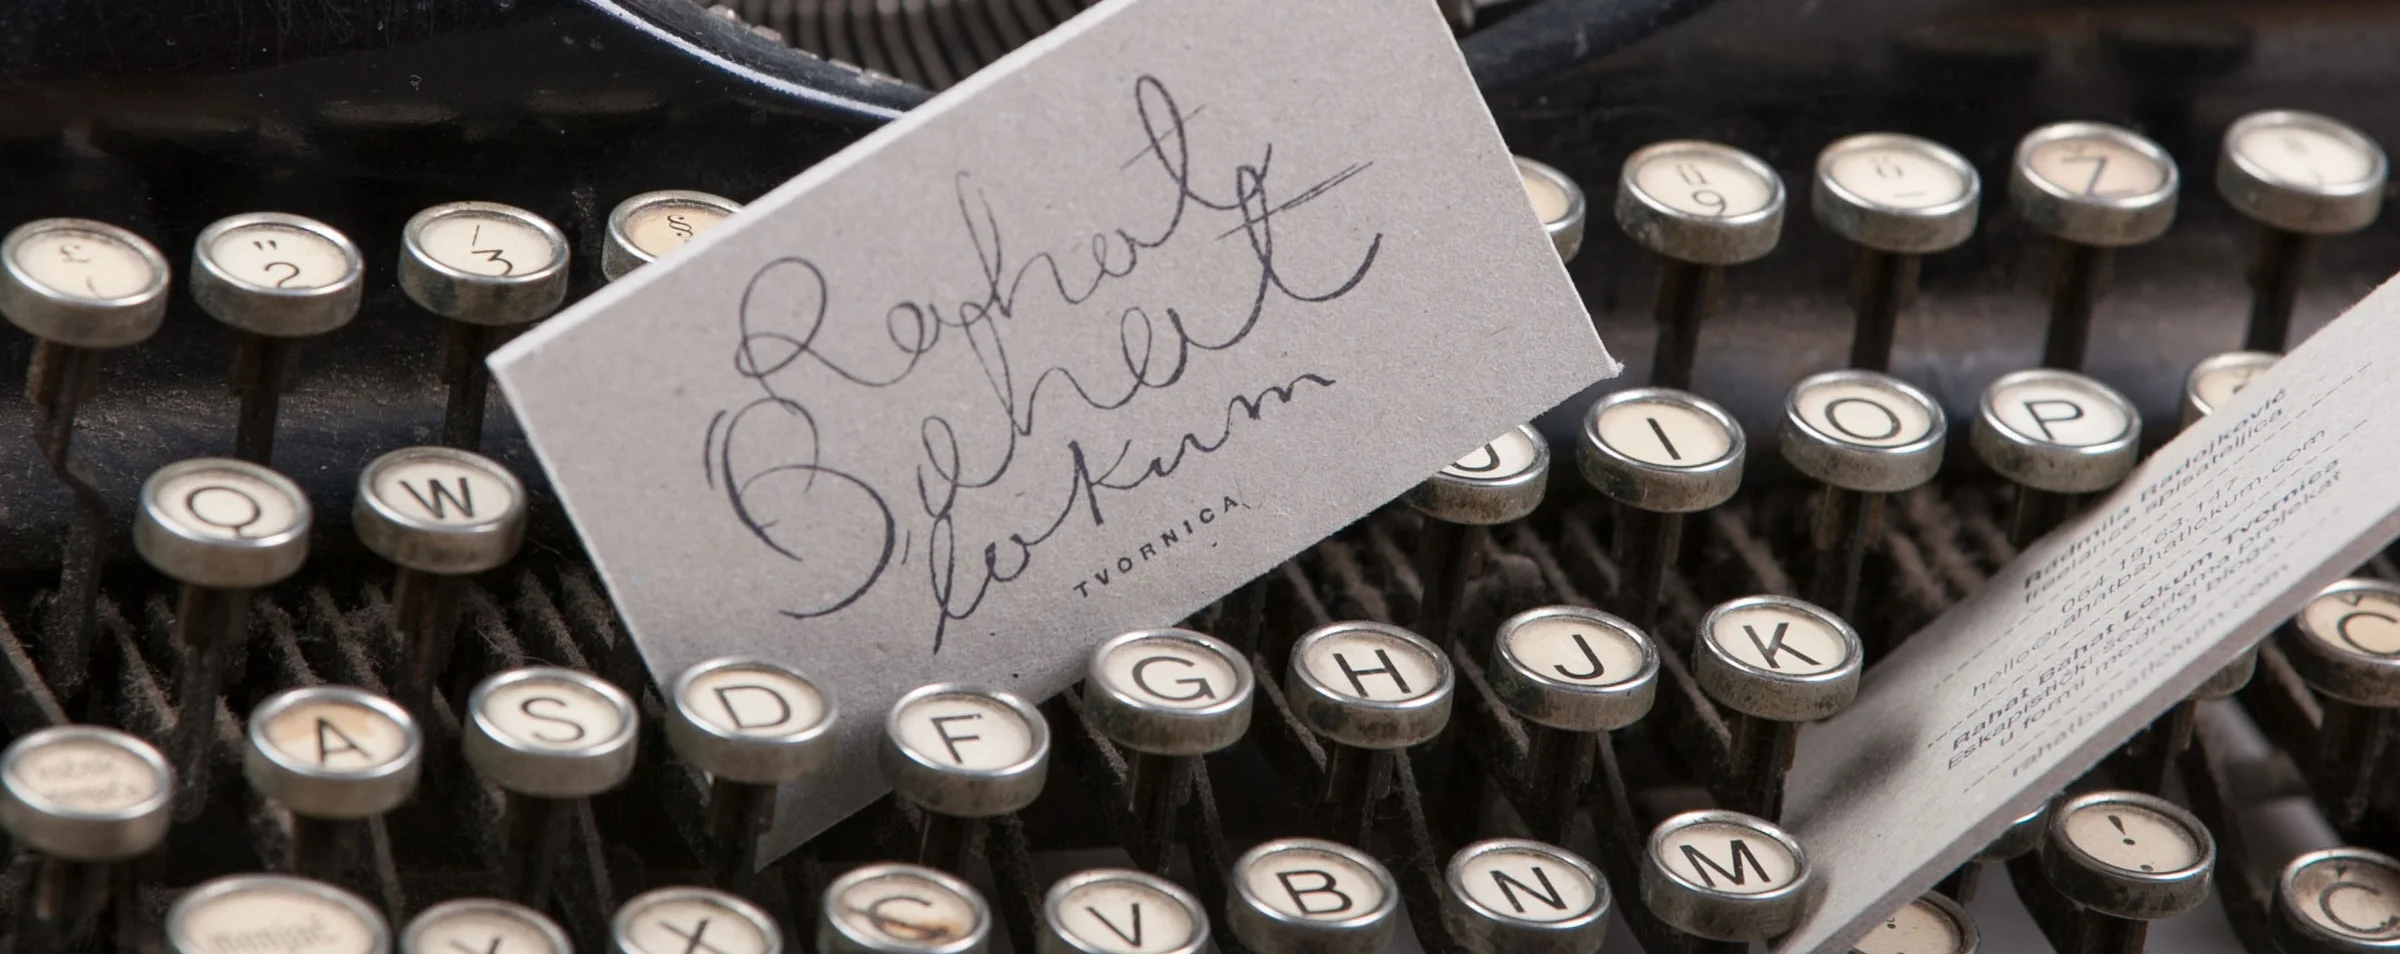 Rahat
Bahat
lokum
TVORNICA
" 2
/ 3
§
9
Z
Q W U I O P
A S D F G H J K
Y X C V B N M !
Č
Ć
Radmila Radojković
freelance spisateljica
064 19 63 147
hello@rahatbahatlokum.com
Rahat Bahat Lokum Tvornica
Eskapistički šećerlema projekat
u formi modnog bloga.
rahatbahatlokum.com